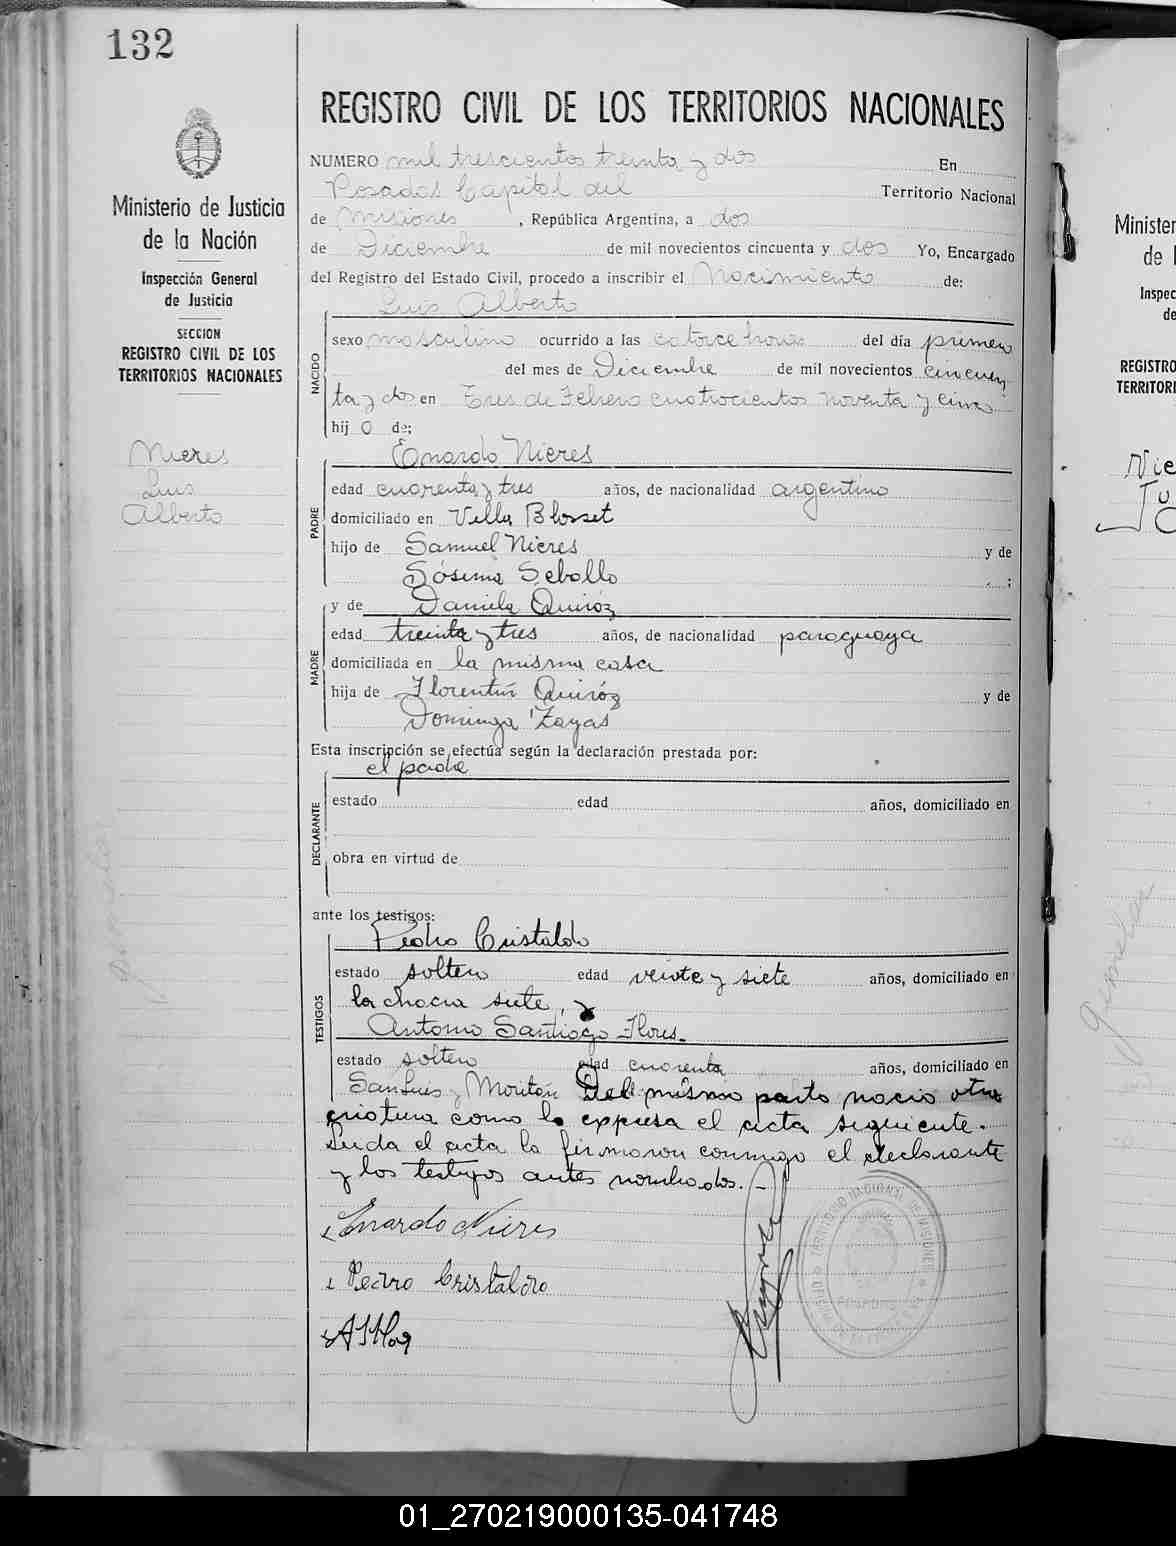 132
Ministerio de Justicia
de la Nación
Inspección General
de Justicia
SECCION
REGISTRO CIVIL DE LOS
TERRITORIOS NACIONALES
Nieres
Luis
Alberto
REGISTRO CIVIL DE LOS TERRITORIOS NACIONALES
NUMERO mil trescientos treinta y dos En
Posadas Capital del Territorio Nacional
de Misiones, República Argentina, a dos
de Diciembre de mil novecientos cincuenta y dos Yo, Encargado
del Registro del Estado Civil, procedo a inscribir el Nacimiento de:
Luis Alberto
NACIDO
sexo masculino ocurrido a las catorce horas del día primero
del mes de Diciembre de mil novecientos cincuen
ta y dos en Tres de Febrero cuatrocientos noventa y cinco
hij o de:
Enardo Nieres
PADRE
edad cuarenta y tres años, de nacionalidad argentino
domiciliado en Villa Blosset
hijo de Samuel Nieres y de
Sósima Seballo ;
y de Daniela Quiróz
MADRE
edad treinta y tres años, de nacionalidad paraguaya
domiciliada en la misma casa
hija de Florentín Quiróz y de
Dominga Zayas
Esta inscripción se efectúa según la declaración prestada por:
el padre
DECLARANTE
estado edad años, domiciliado en
obra en virtud de
ante los testigos:
Pedro Cristaldo
TESTIGOS
estado soltero edad veinte y siete años, domiciliado en
la chacra siete, y
Antonio Santiago Flores.
estado soltero edad cuarenta años, domiciliado en
San Luis y Moritán Del mismo parto nació otra
criatura como lo expresa el acta siguiente.
Leida el acta la firmaron conmigo el declarante
y los testigos antes nombrados.-
Enardo Nieres
Pedro Cristaldo
Minister
de l
Inspec
de
REGISTRO
TERRITORI
Nie
Gimelar
01_270219000135-041748